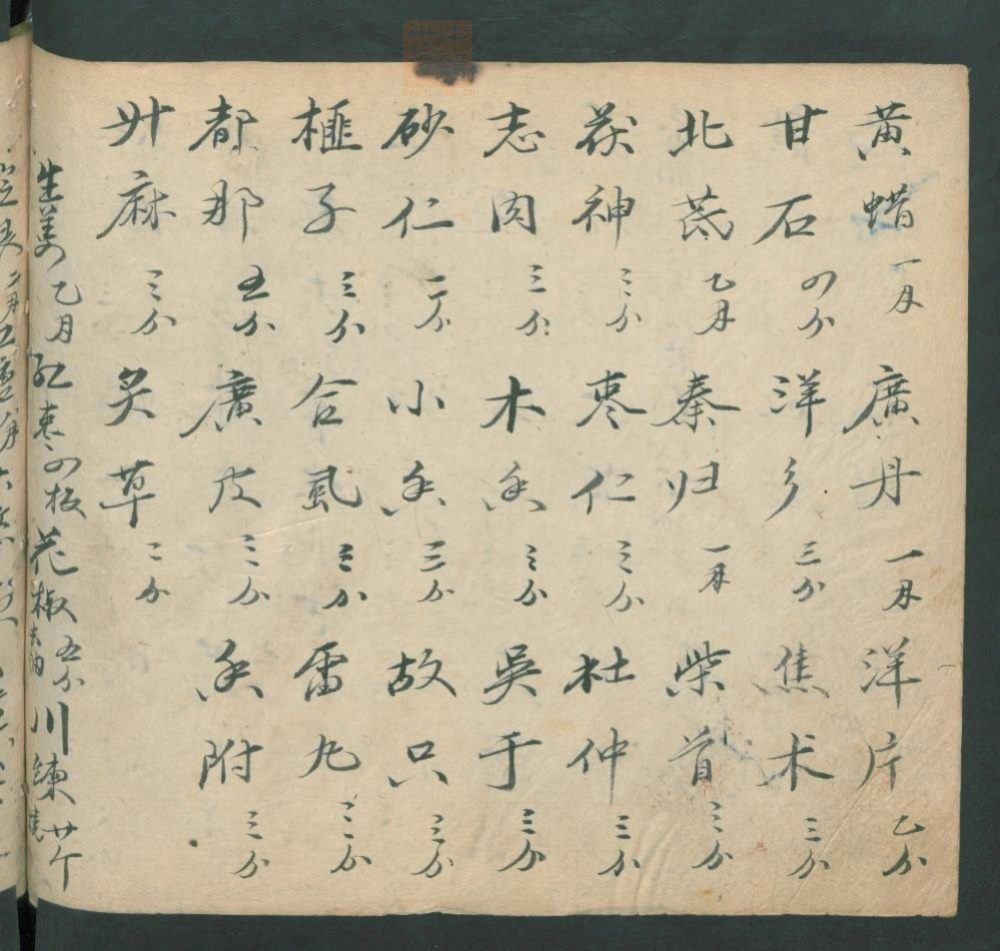 黄蜡一月 廣丹一月 洋片乙分
甘石四分 洋乡三分 焦术三分
北芪乙月 秦归一月 柴首三分
茯神三分 枣仁三分 杜仲三分
志肉三分 木香三分 吳于三分
砂仁二分 小香三分 故只三分
榧子三分 合虱三分 雷丸三分
都那五分 廣皮三分 香附三分
升麻三分 炙草二分
生姜乙月 红枣四枚 花椒五分 去油 川練廿个